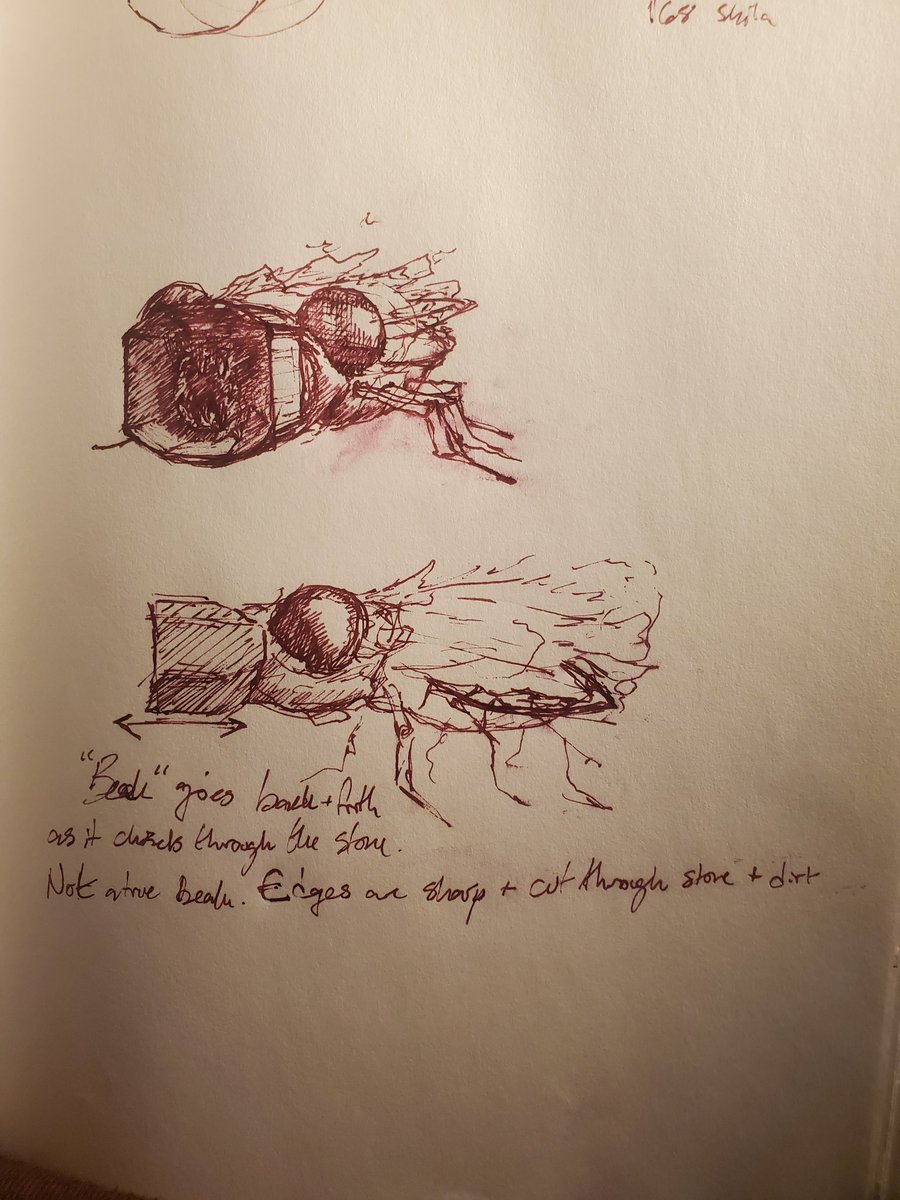 "Beak" goes back + forth
as it chisels through the stone.
Not a true beak. Edges are sharp + cut through stone + dirt